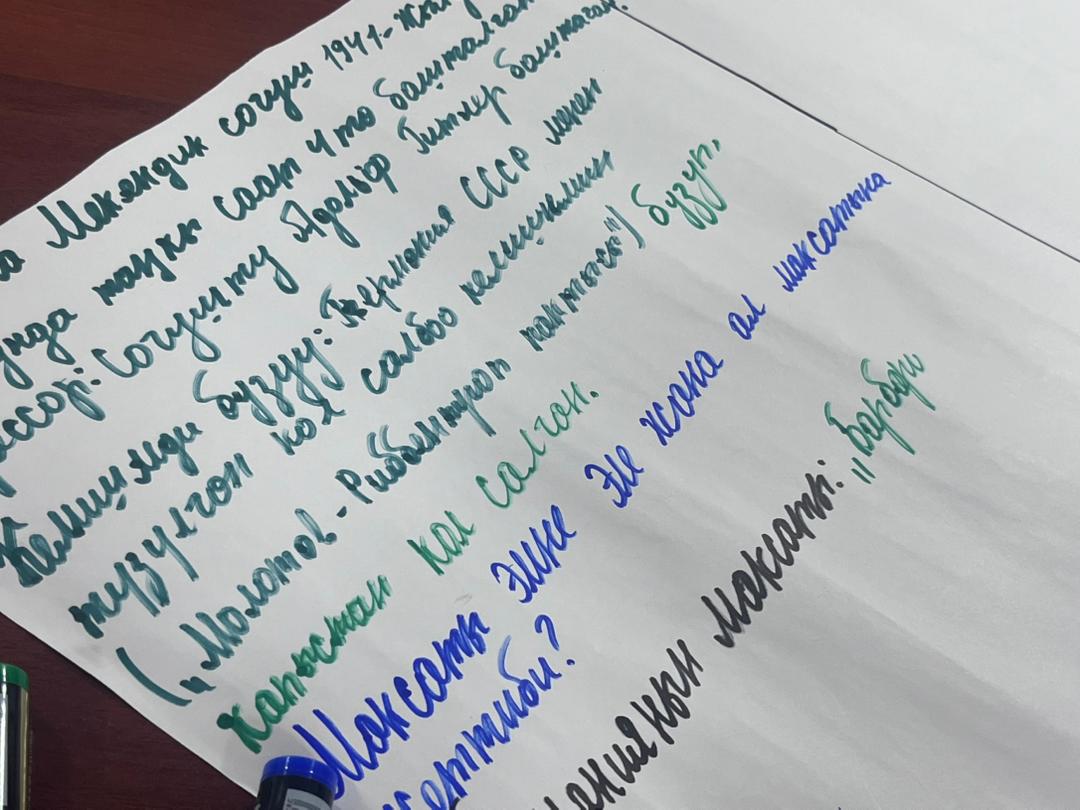 Мекендик согуш 1941-
таңкы саат 4 то башталган
Согушту Адольф Гитлер баштаган.
Келишимди бузуу: Германия СССР менен
түзүлгөн кол салбоо келишимин
(„Молотов-Риббентроп пактысы") бузуп,
капыстан кол салган.
Максаты эмне эле жана ал максатына
жеттиби?
Максаты: „Барбар